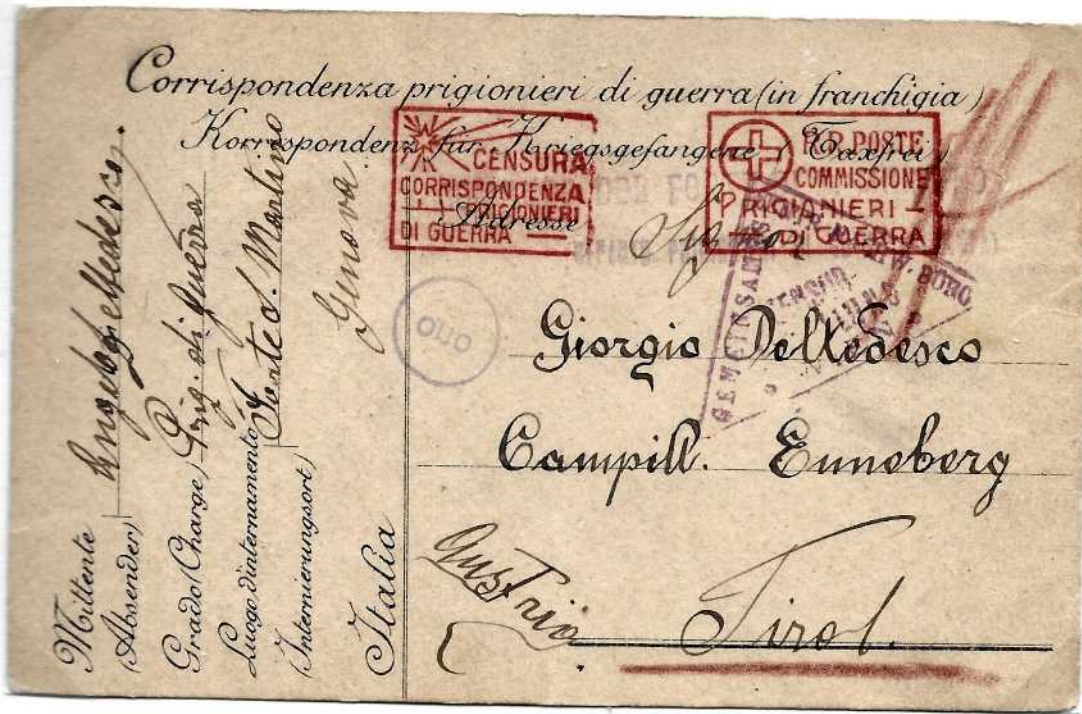 Corrispondenza prigionieri di guerra (in franchigia)
Korrespondenz für Kriegsgefangene (Taxfrei)
CENSURA
CORRISPONDENZA
PRIGIONIERI
DI GUERRA
R.R. POSTE
COMMISSIONE
PRIGIONIERI
DI GUERRA
Adresse
Giorgio Deltedesco
Campill. Enneberg
Tirol.
Austria
GEMEINSAMES
ZENSUR
Mittente
(Absender)
Grado (Charge) Prig. di guerra
Luogo d'internamento Forte S. Martino
(Internierungsort)
Genova
Italia